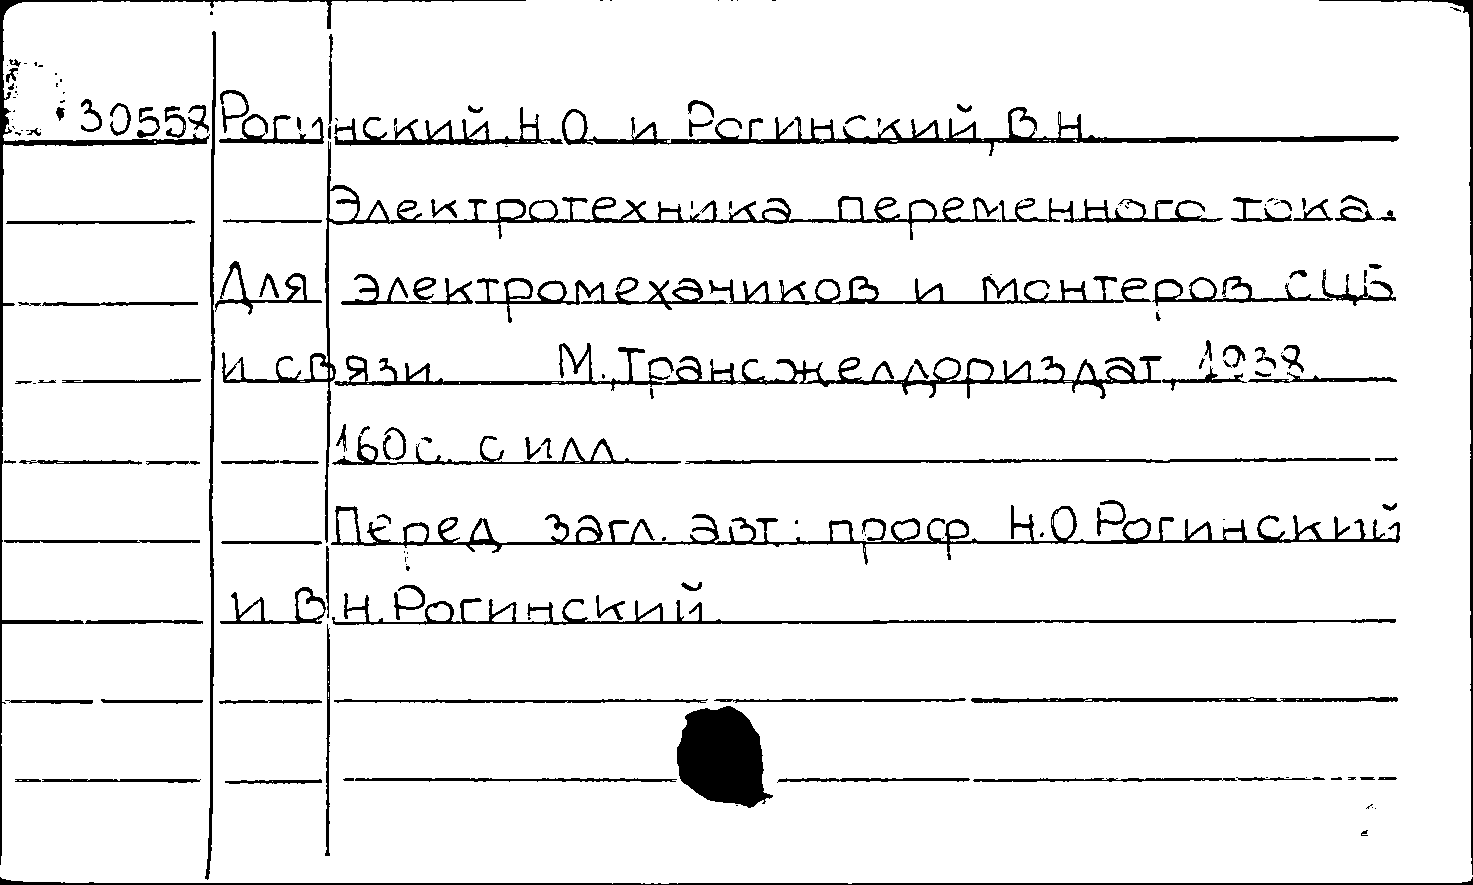 30558 Рогинский Н.О. и Рогинский, В.Н.
Электротехника переменного тока.
Для электромехаников и монтеров СЦБ
и связи. М., Трансжелдориздат, 1938.
160с. с илл.
Перед загл. авт: проф. Н.О Рогинский
и В.Н. Рогинский.